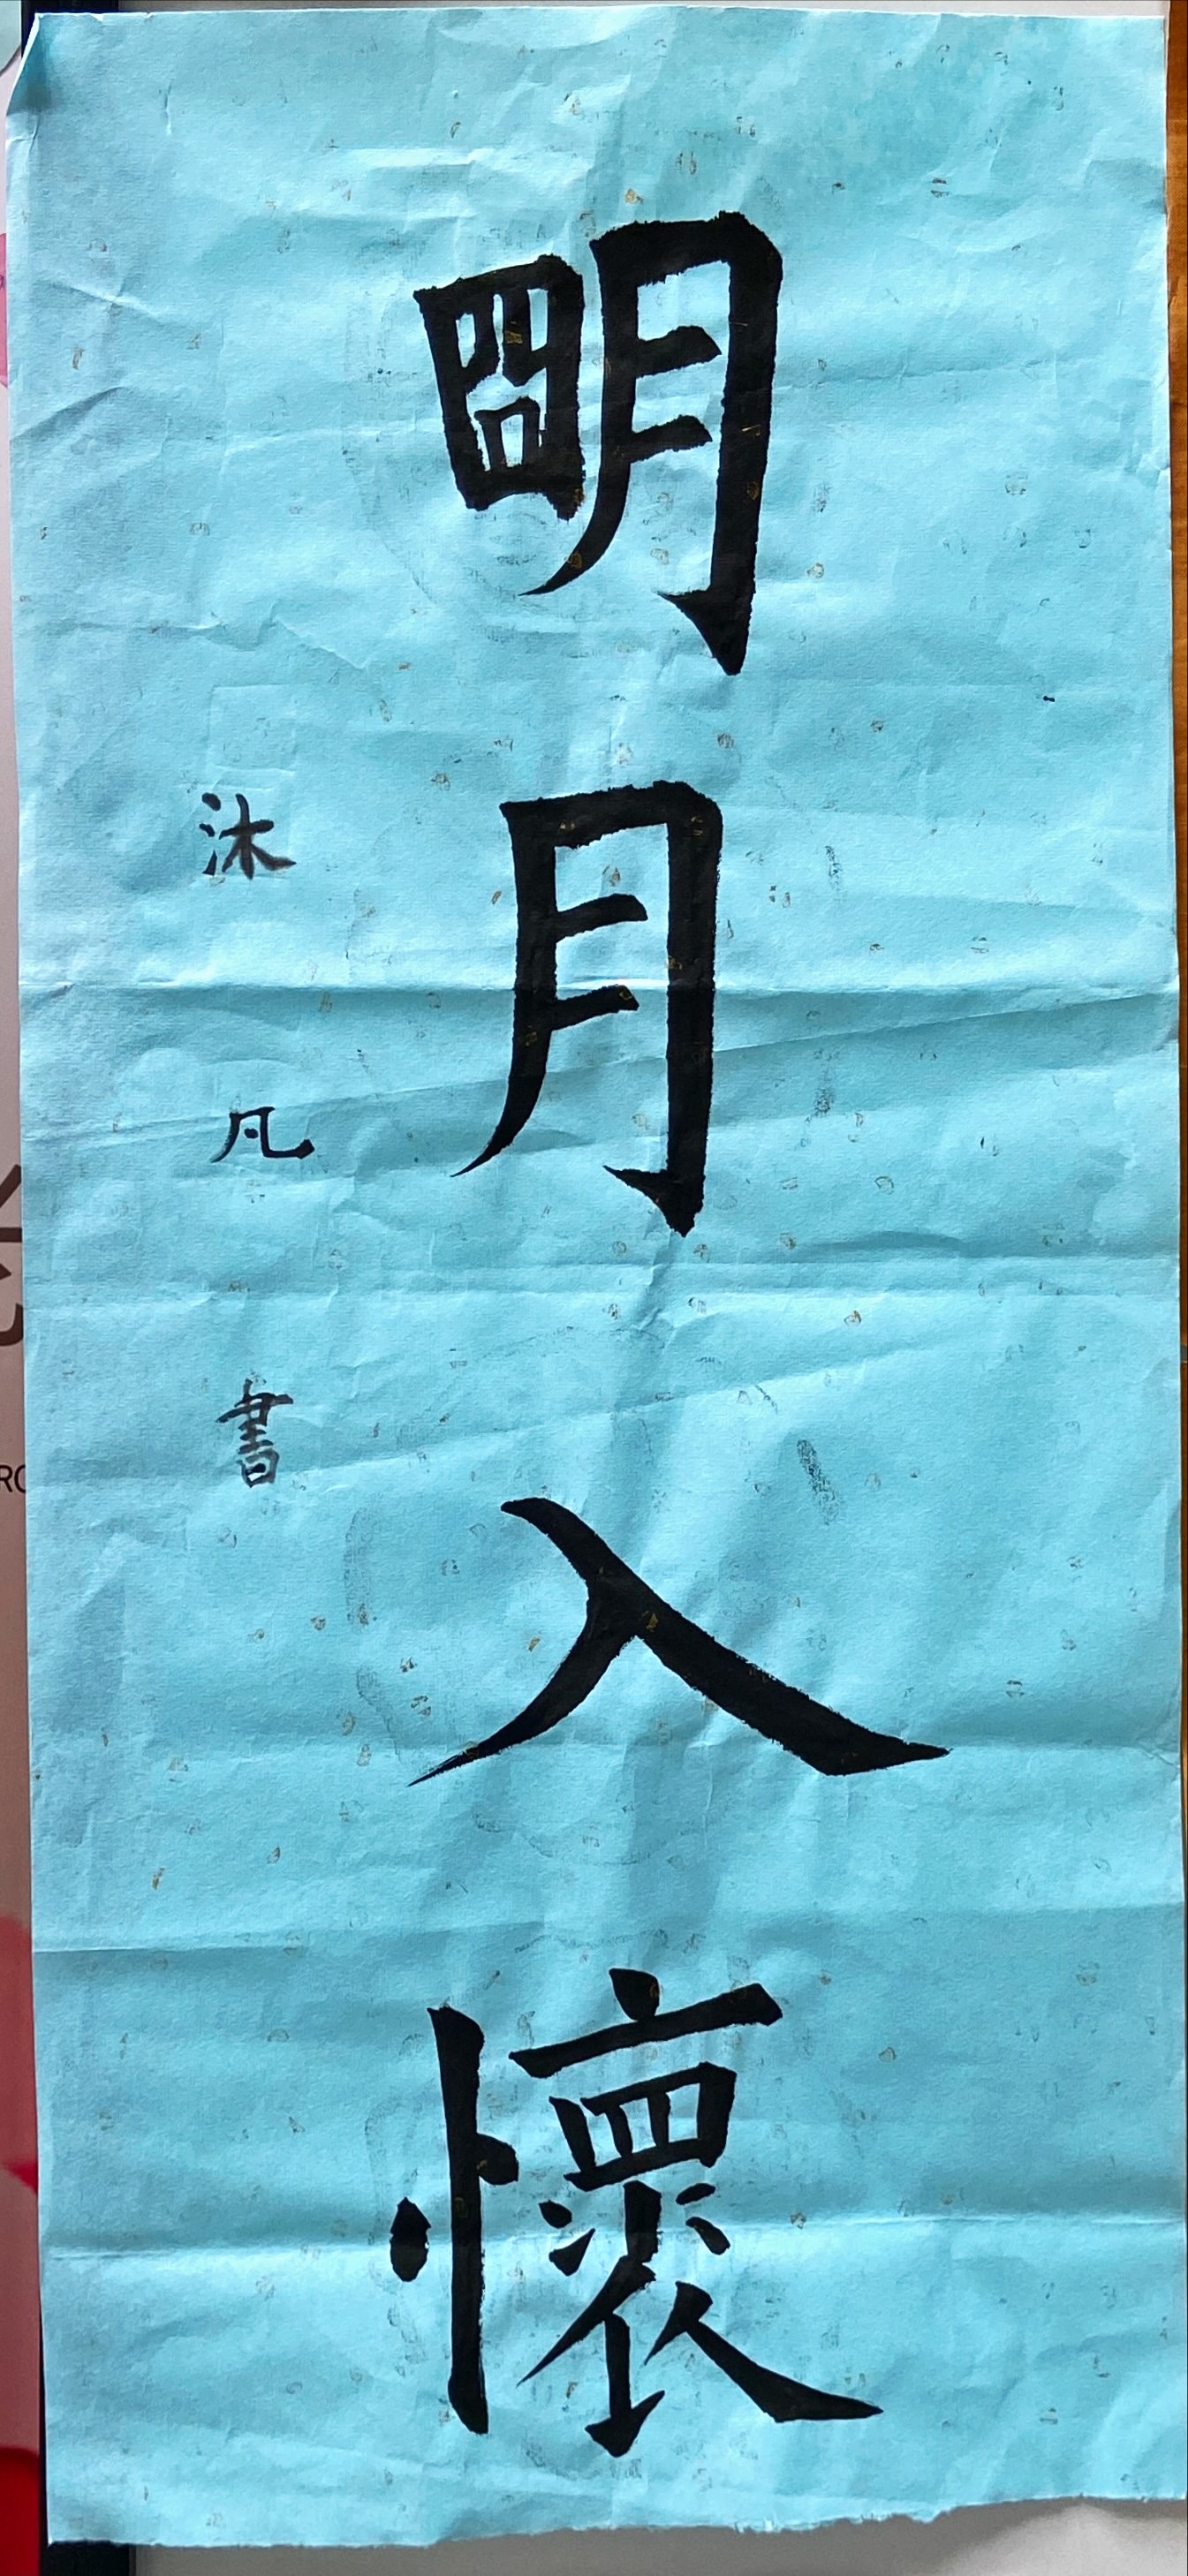 朙月入懷
沐凡書